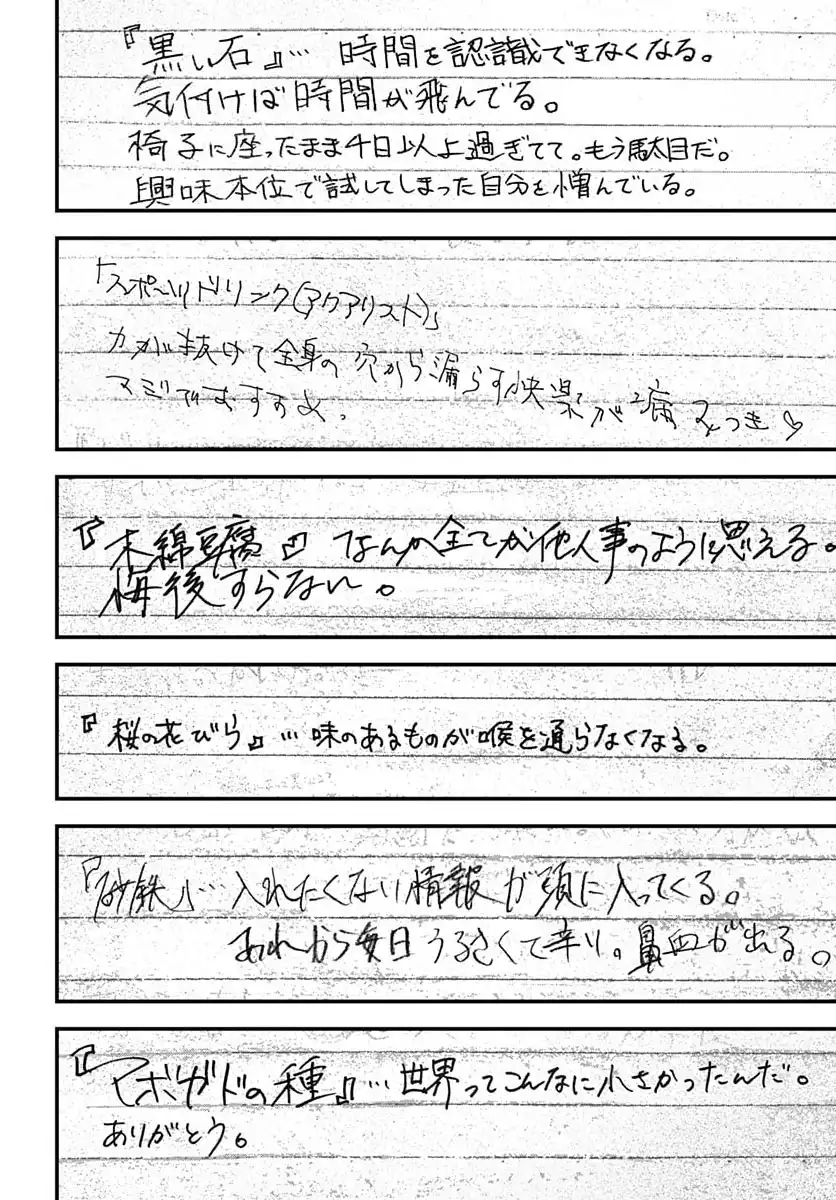 『黒い石』… 時間を認識できなくなる。
気付けば時間が飛んでる。
椅子に座ったまま4日以上過ぎてて。もう駄目だ。
興味本位で試してしまった自分を憎んでいる。
「スポーツドリンク(アクアリスト)」
力が抜けて全身の穴から漏らす快楽が病みつき♡
マミりですすめ。
『木綿豆腐』 なんか全てが他人事のように思える。
悔後すらない。
『桜の花びら』… 味のあるものが喉を通らなくなる。
『砂鉄』… 入れたくない情報が頭に入ってくる。
あれから毎日うるさくて辛い。鼻血が出る。
『アボガドの種』… 世界ってこんなに小さかったんだ。
ありがとう。